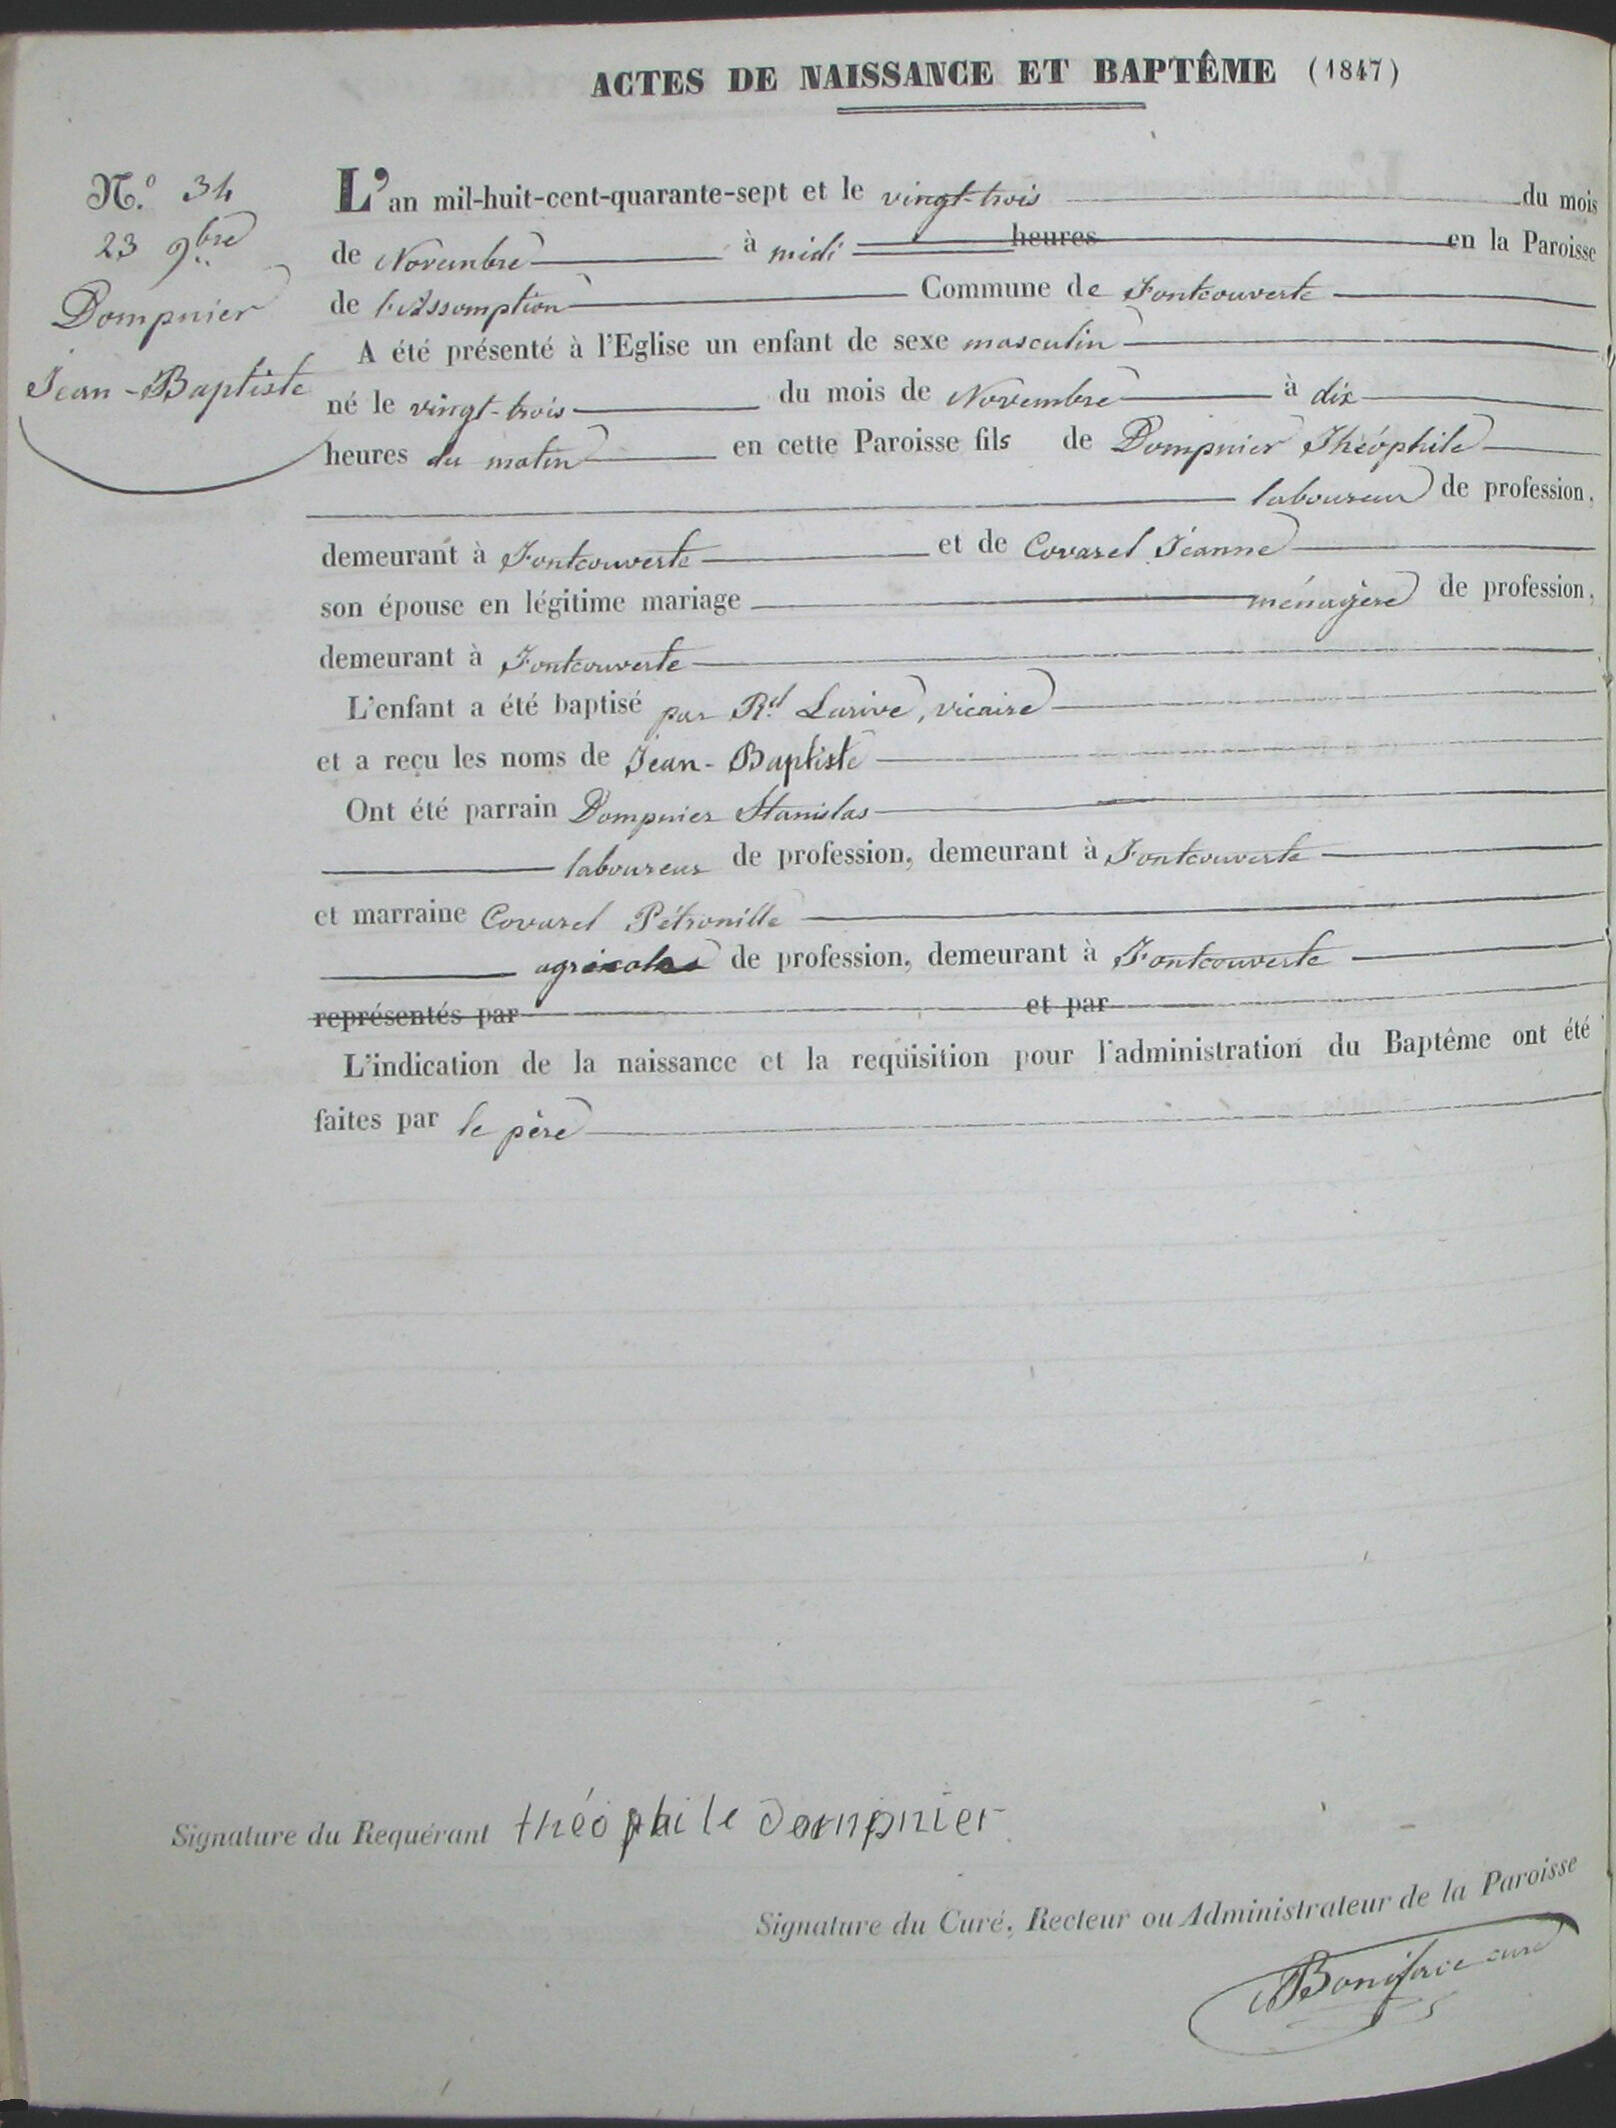 ACTES DE NAISSANCE ET BAPTÊME (1847)
N.o 34
23 9bre
Dompnier
Jean-Baptiste
L'an mil-huit-cent-quarante-sept et le vingt-trois du mois
de Novembre à midi heures en la Paroisse
de l'Assomption Commune de Fontcouverte
A été présenté à l'Eglise un enfant de sexe masculin
né le vingt-trois du mois de Novembre à dix
heures du matin en cette Paroisse fils de Dompnier Théophile
laboureur de profession,
demeurant à Fontcouverte et de Covarel Jeanne
son épouse en légitime mariage ménagère de profession,
demeurant à Fontcouverte
L'enfant a été baptisé par Rd Larive, vicaire
et a reçu les noms de Jean-Baptiste
Ont été parrain Dompnier Stanislas
laboureur de profession, demeurant à Fontcouverte
et marraine Covarel Pétronille
agricole de profession, demeurant à Fontcouverte
représentés par et par
L'indication de la naissance et la requisition pour l'administration du Baptême ont été
faites par le père
Signature du Requérant théophile dompnier
Signature du Curé, Recteur ou Administrateur de la Paroisse
Boniface curé